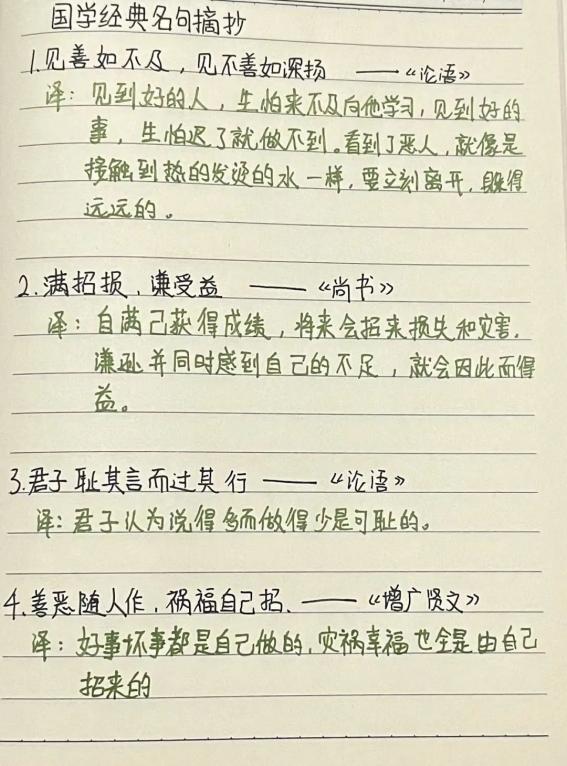 国学经典名句摘抄
1.见善如不及，见不善如深扬 ——《论语》
译：见到好的人，生怕来不及向他学习，见到好的
事，生怕迟了就做不到。看到了恶人，就像是
接触到热的发烫的水一样，要立刻离开，躲得
远远的。
2.满招损，谦受益 ——《尚书》
译：自满已获得成绩，将来会招来损失和灾害.
谦逊并同时感到自己的不足，就会因此而得
益。
3.君子耻其言而过其行 ——《论语》
译：君子认为说得多而做得少是可耻的。
4.善恶随人作，祸福自己招. ——《增广贤文》
译：好事坏事都是自己做的，灾祸幸福也全是由自己
招来的